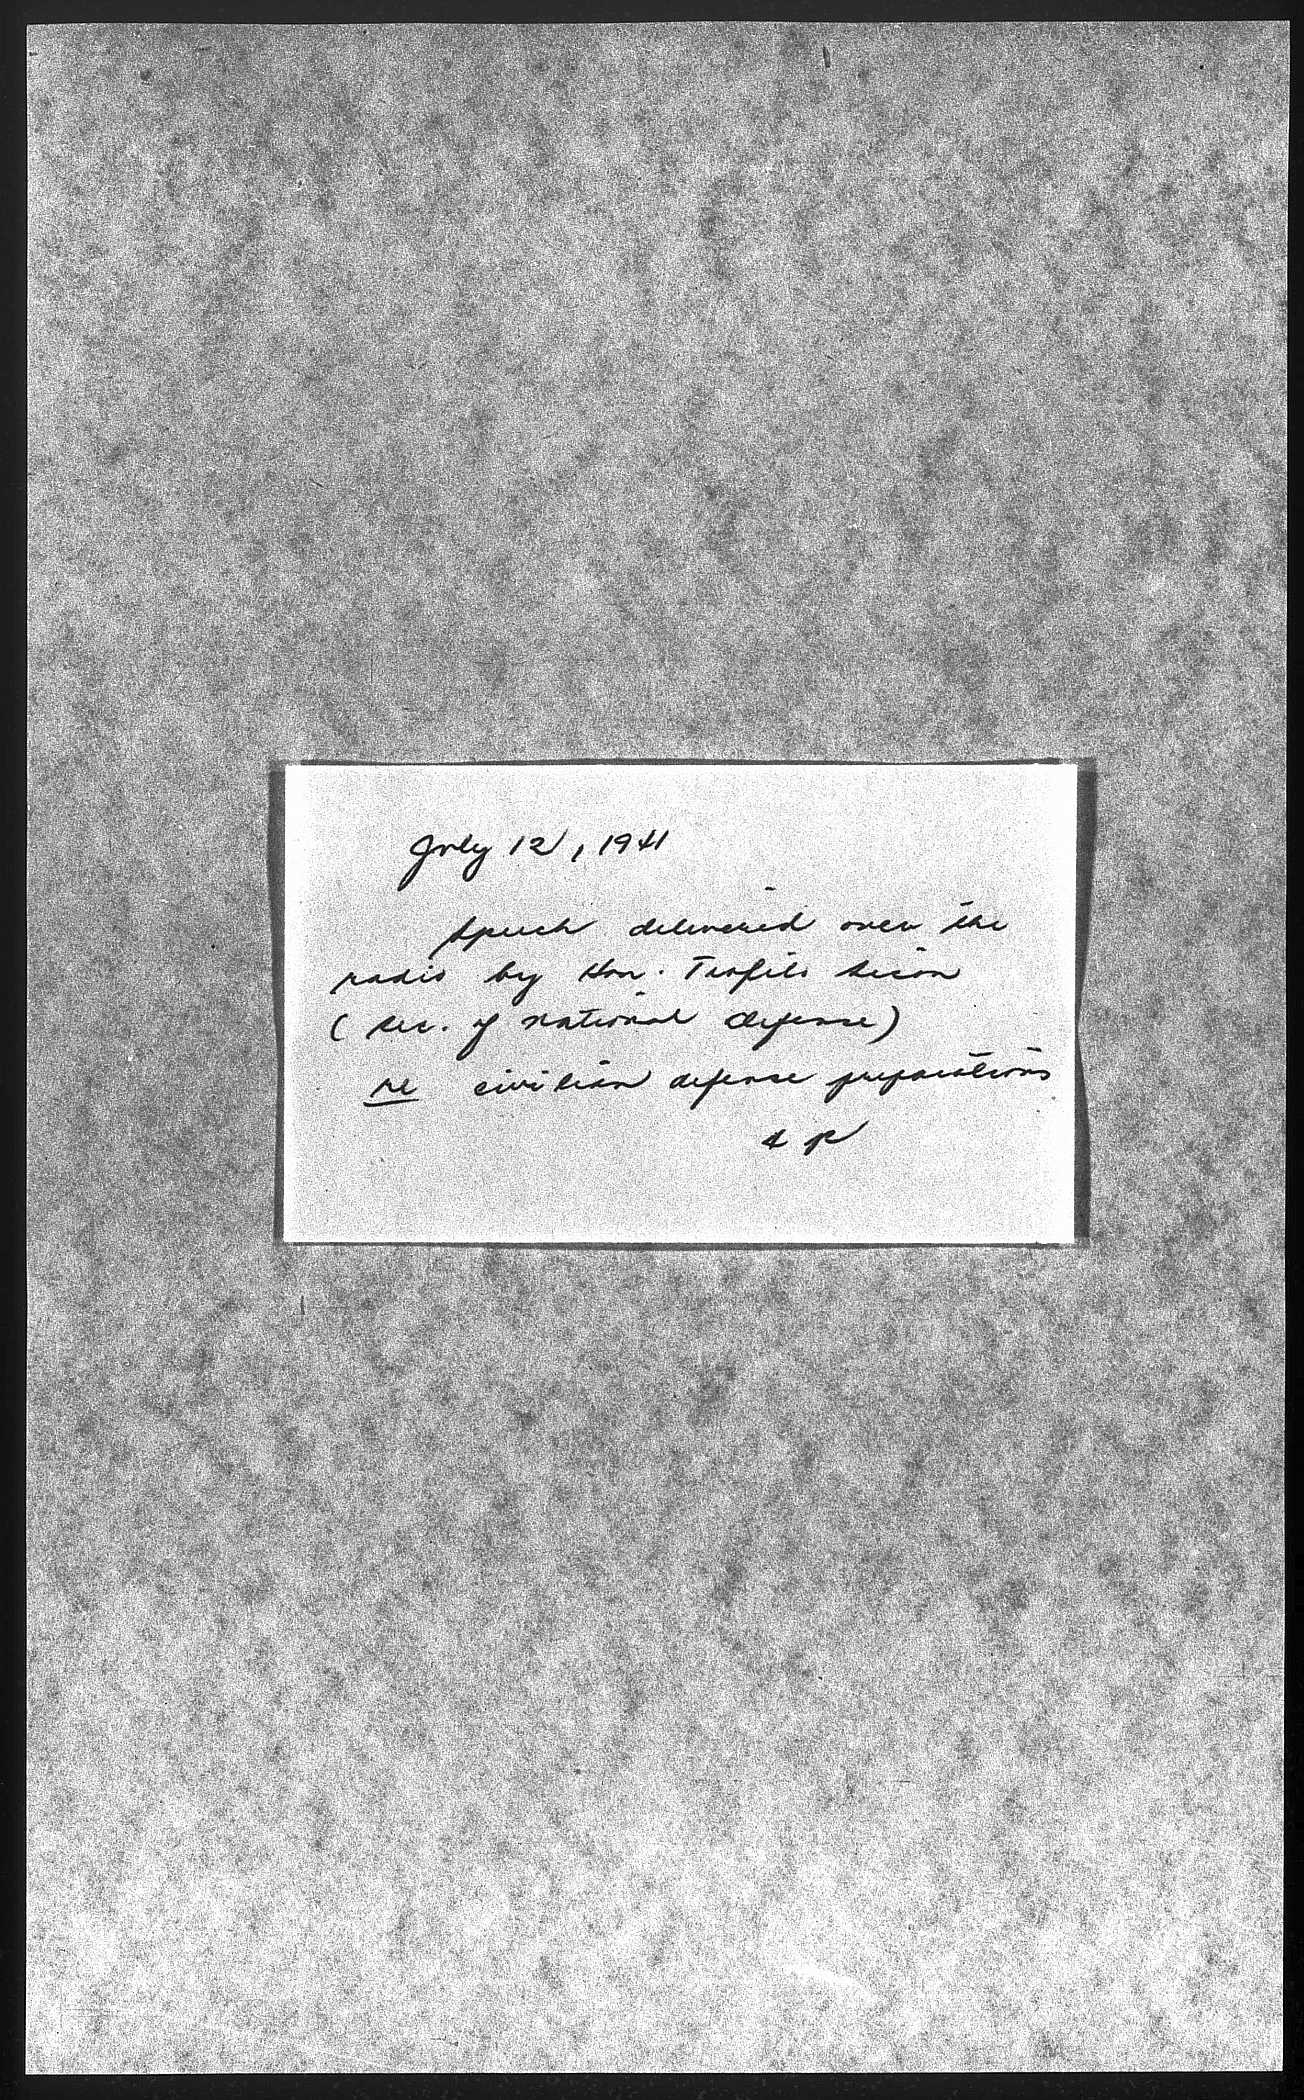 July 12, 1941
Speech delivered over the
radio by Hon. Teofilo Sison
(Sec. of National Defense)
re civilian defense preparations
4 p